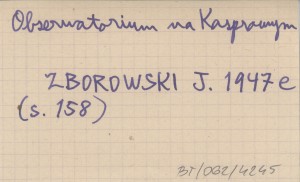 Obserwatorium na Kasprowym
ZBOROWSKI J. 1947e
(s. 158)
BT/OG2/4245